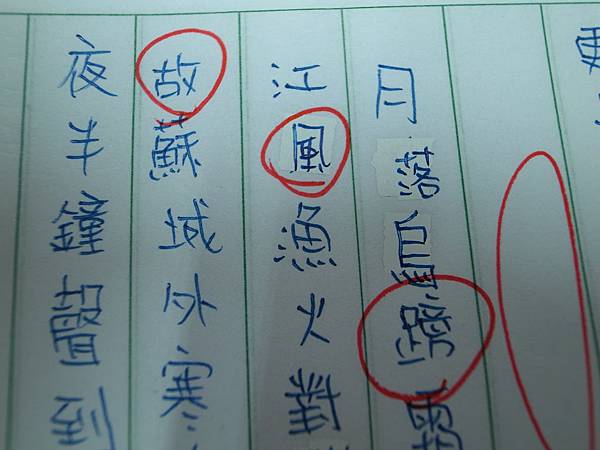 月落烏蹄霜
江風漁火對
故蘇城外寒
夜半鐘聲到